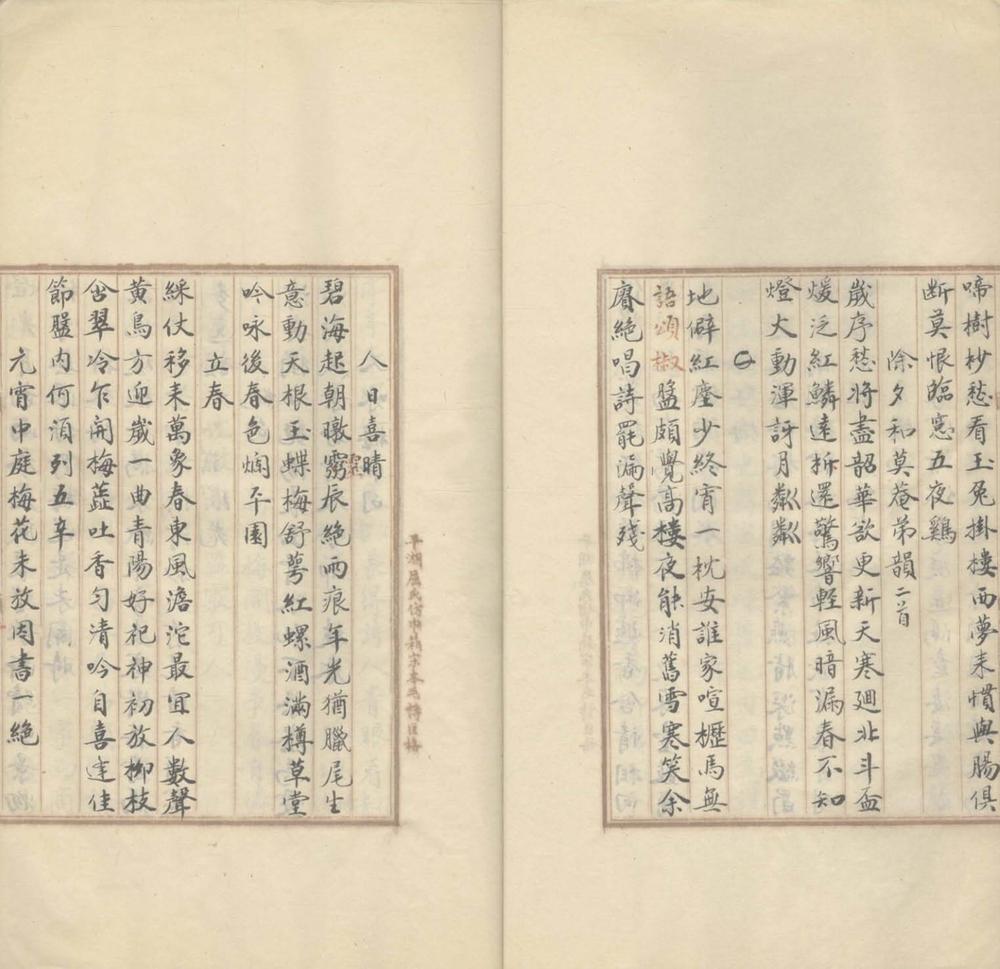 啼樹杪愁看玉兔掛樓西夢來慣與腸俱
断莫恨臨窓五夜鷄
除夕和莫菴弟韻二首
歲序愁將盡韶華欲更新天寒廻北斗盃
煖泛紅鱗遠柝還驚響輕風暗漏春不知
燈火動渾訝月粼粼
地僻紅塵少終宵一枕安誰家喧櫪馬無
語頌椒盤頗覺高樓夜能消舊雪寒笑余
賡絶唱詩罷漏聲殘
人日喜晴
碧海起朝暾窮辰絶雨痕年光猶臘尾生
意動天根玉蝶梅舒萼紅螺酒滿樽草堂
吟咏後春色爛平園
立春
綵仗移来萬象春東風澹沱最宜人數聲
黄鳥方迎歲一曲青陽好祀神初放柳枝
含翠冷乍開梅蕋吐香匀清吟自喜逢佳
節盤内何須列五辛
元宵中庭梅花未放因書一絶